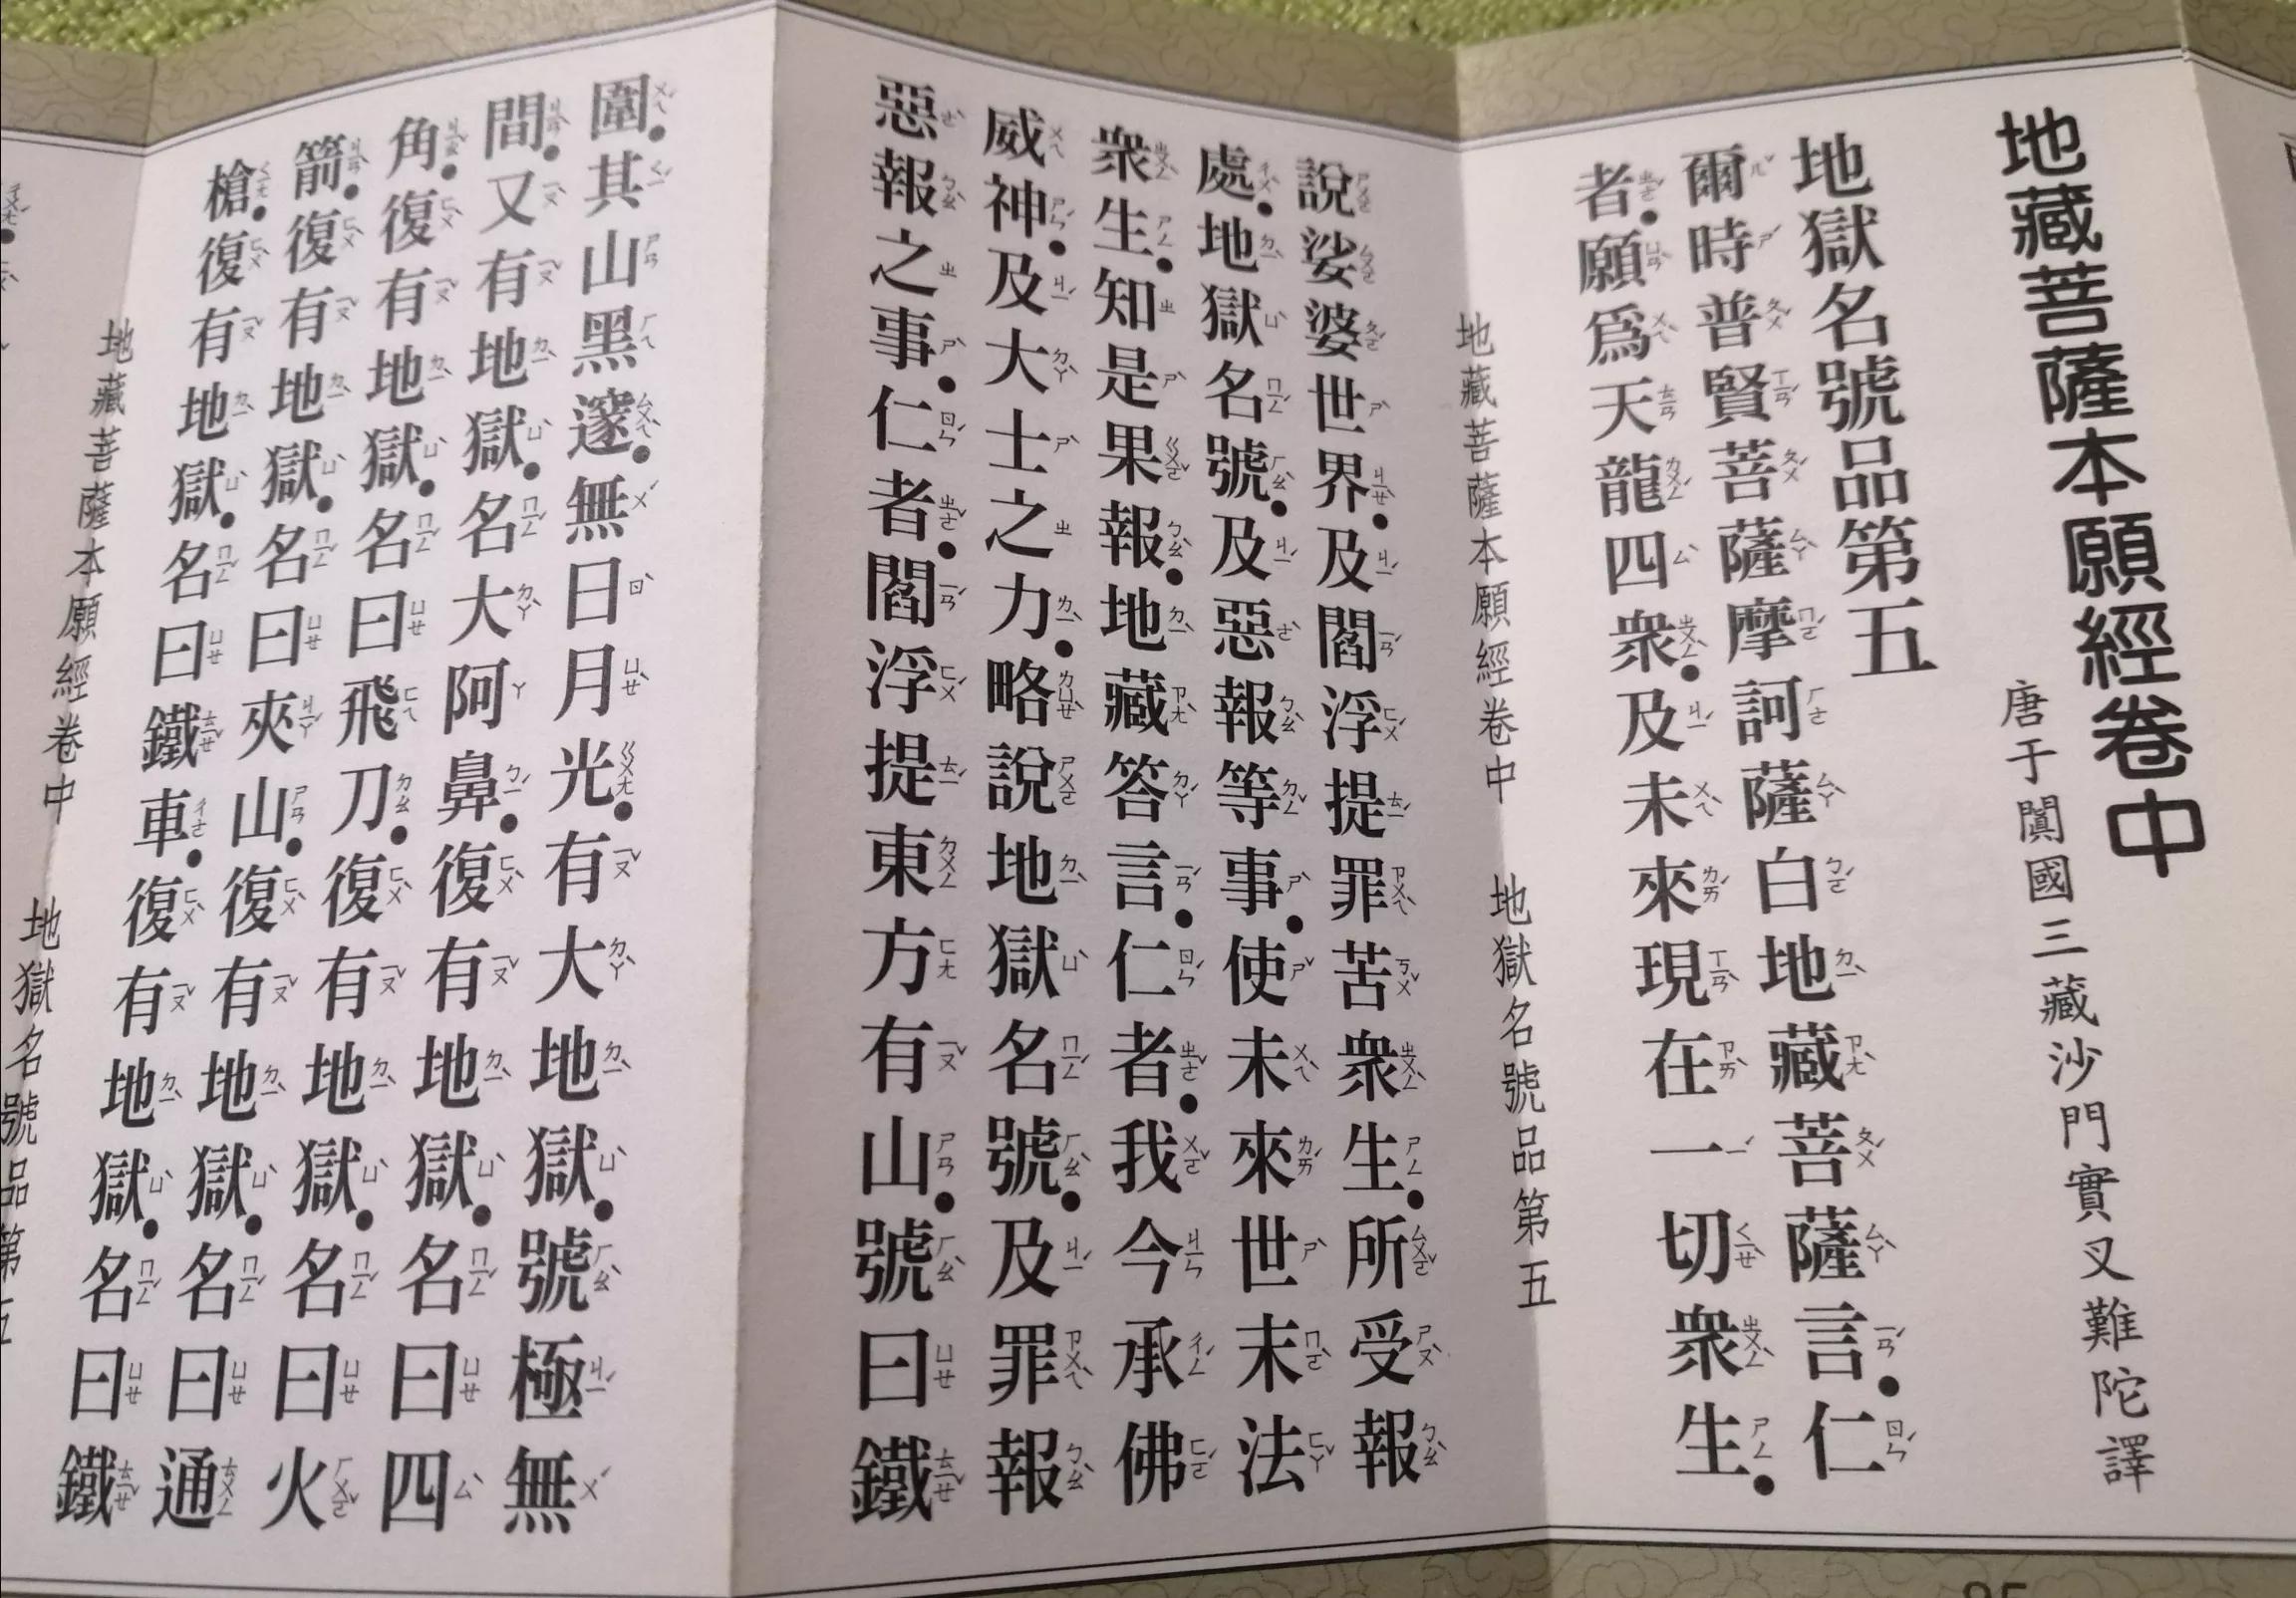 地藏菩薩本願經卷中
唐于闐國三藏沙門實叉難陀譯
地獄名號品第五
爾時普賢菩薩摩訶薩白地藏菩薩言●仁
者●願為天龍四眾●及未來現在一切眾生●
地藏菩薩本願經卷中 地獄名號品第五
說娑婆世界●及閻浮提罪苦眾生●所受報
處●地獄名號●及惡報等事●使未來世末法
眾生●知是果報●地藏答言●仁者●我今承佛
威神●及大士之力●略說地獄名號●及罪報
惡報之事●仁者●閻浮提東方有山●號曰鐵
圍●其山黑邃●無日月光●有大地獄●號極無
間●又有地獄●名大阿鼻●復有地獄●名曰四
角●復有地獄●名曰飛刀●復有地獄●名曰火
箭●復有地獄●名曰夾山●復有地獄●名曰通
槍●復有地獄●名曰鐵車●復有地獄●名曰鐵
地藏菩薩本願經卷中 地獄名號品第五